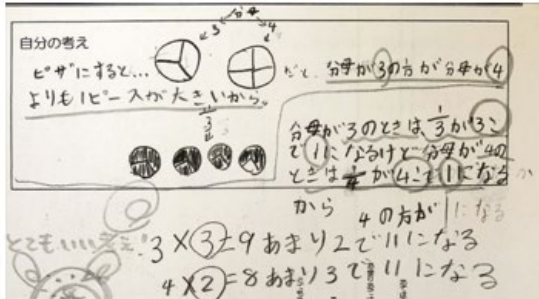 3 ← 分母 → 4
自分の考え
ピザにすると… だと、分母が3の方が分母が4
よりも1ピースが大きいから。
1/3
分母が3のときは、1/3が3こ
で1になるけど分母が4の
ときは1/4が4こで1になる
から 4の方が
とてもいい考え!
3×3=9あまり2で11になる
4×2=8あまり3で11になる